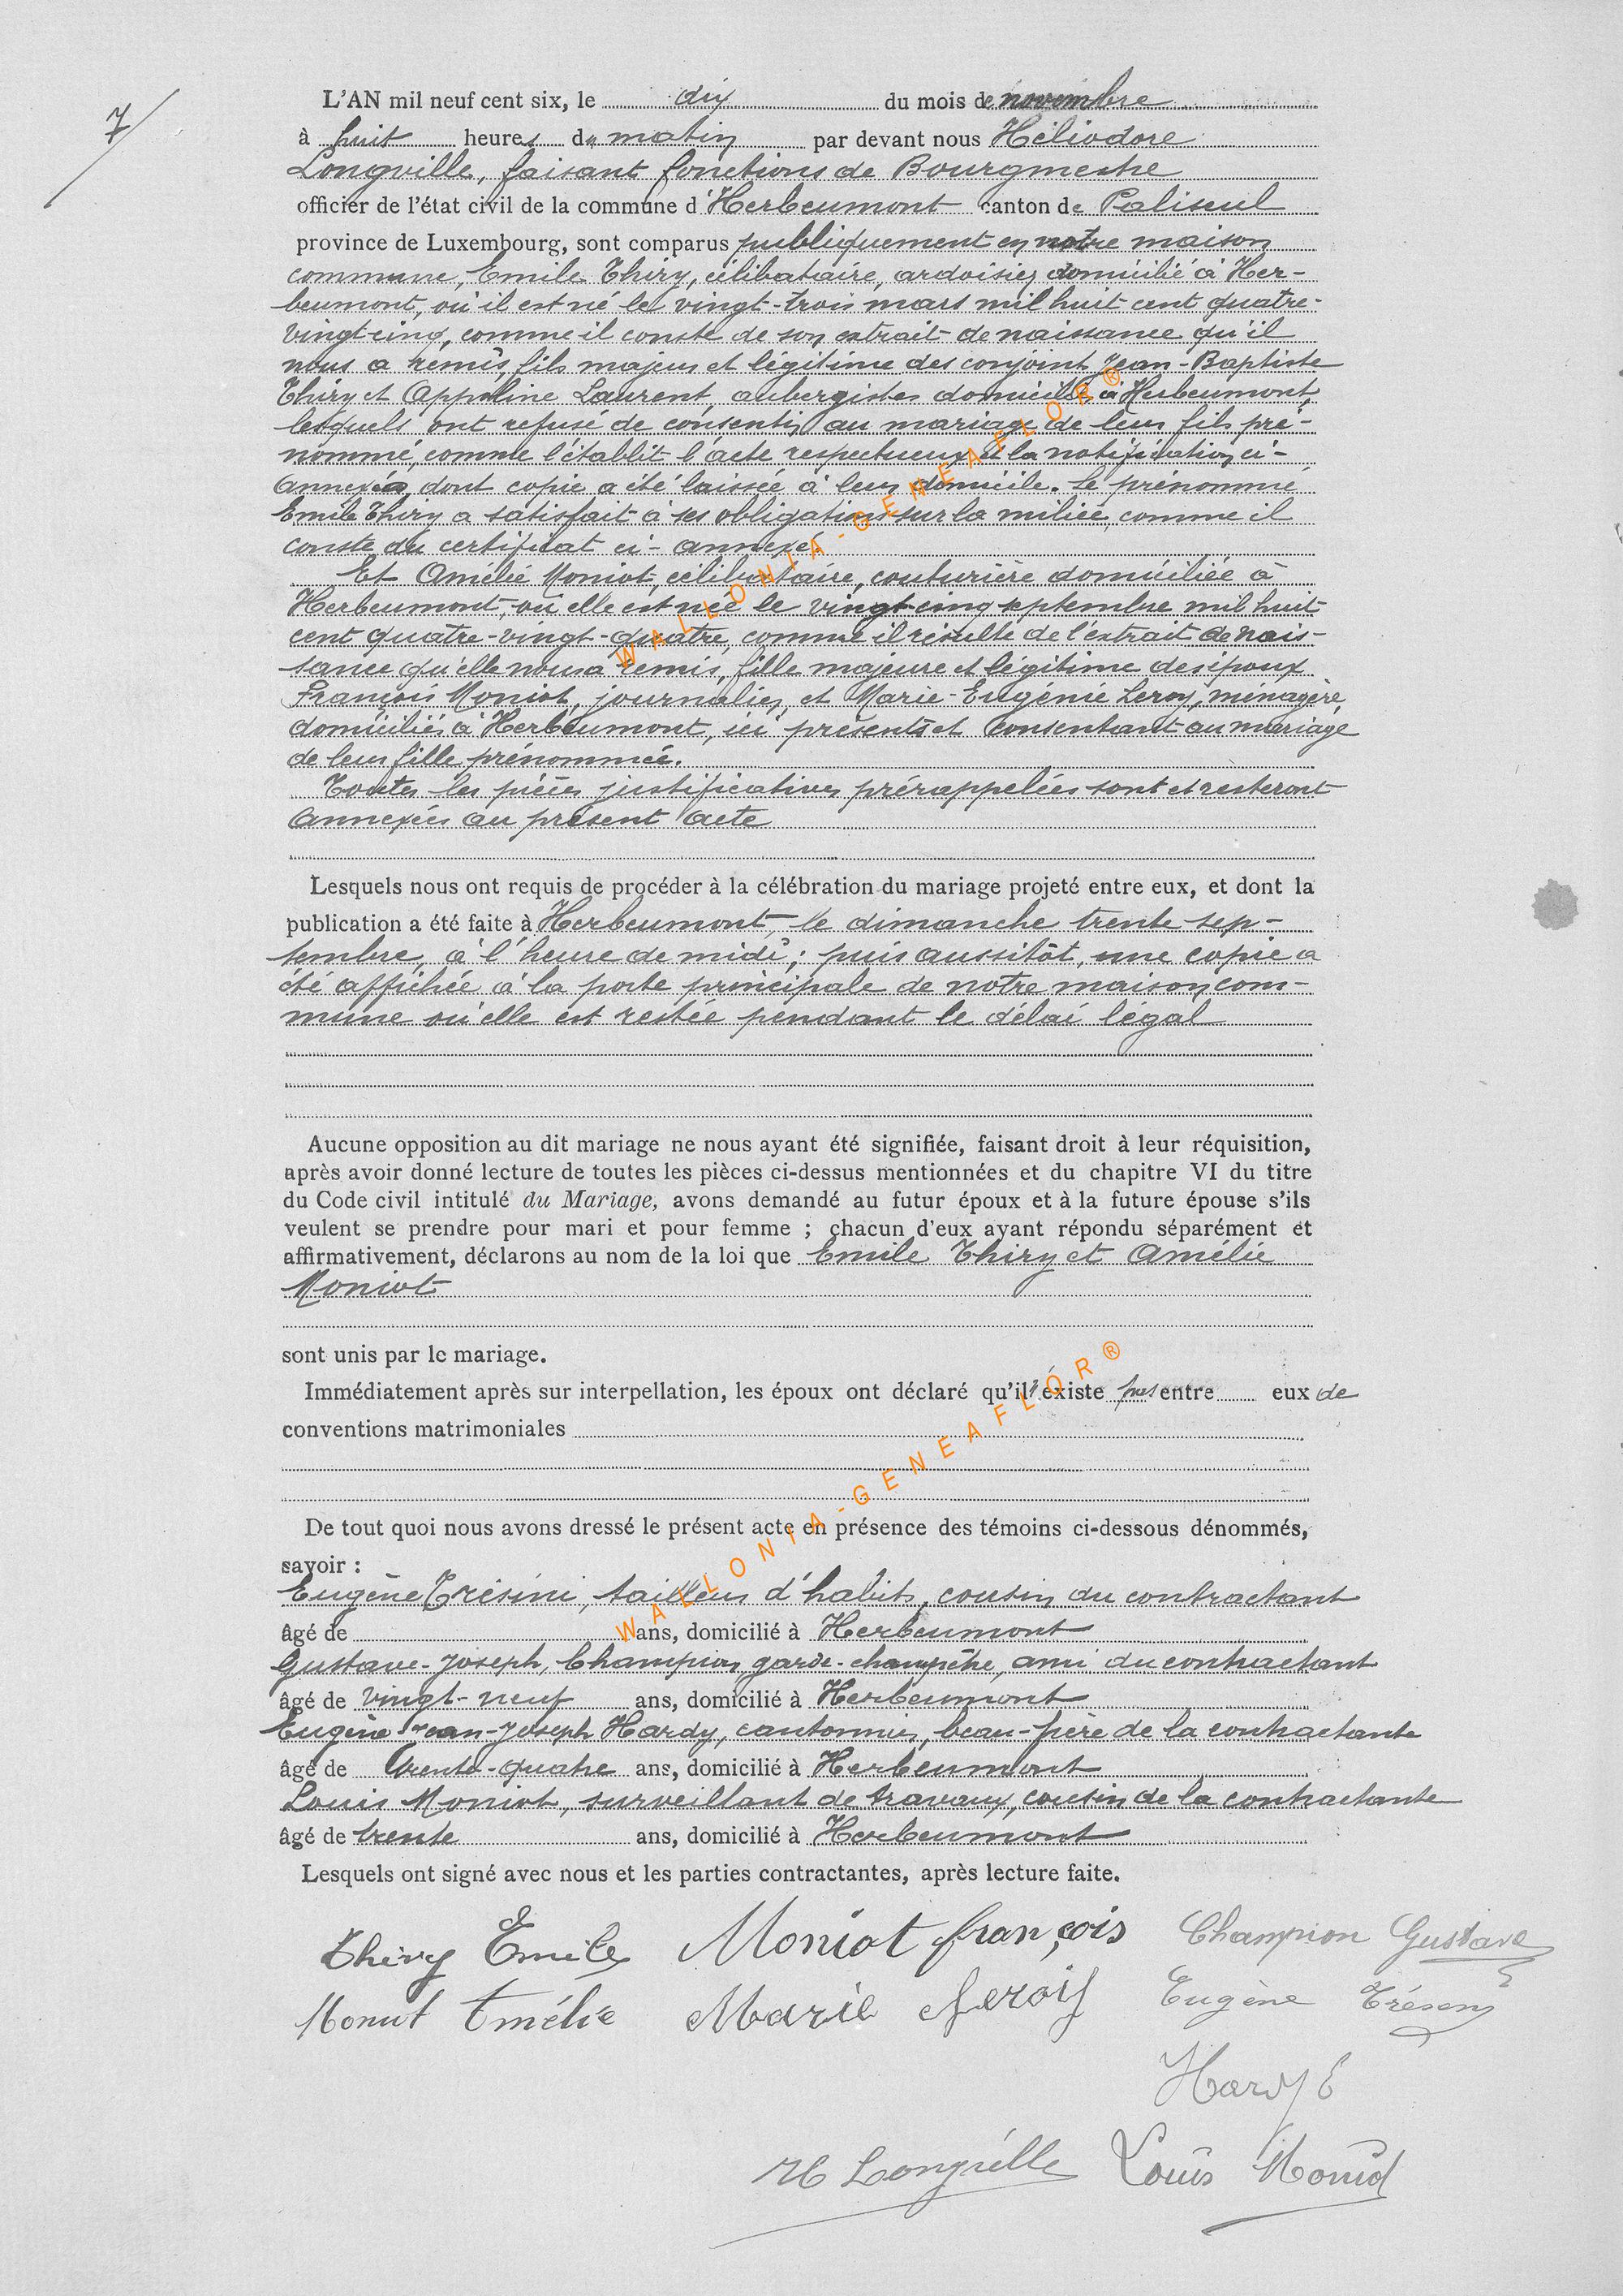 7/
L'AN mil neuf cent six, le dix du mois de novembre
à huit heures du matin par devant nous Héliodore
Longville, faisant fonctions de Bourgmestre
officier de l'état civil de la commune d'Herbeumont canton de Paliseul
province de Luxembourg, sont comparus publiquement en notre maison
commune, Emile Thiry, célibataire, ardoisier domicilié à Her-
beumont, où il est né le vingt-trois mars mil huit cent quatre-
vingt-cinq, comme il conste de son extrait de naissance qu'il
nous a remis, fils majeur et légitime des conjoint Jean-Baptiste
Thiry et Appoline Laurent, aubergistes domiciliés à Herbeumont,
lesquels ont refusé de consentir au mariage de leur fils pré-
nommé, comme l'établit l'acte respectueux et la notification ci-
annexés, dont copie a été laissée à leur domicile. Le prénommé
Emile Thiry a satisfait à ses obligations sur la milice, comme il
conste du certificat ci-annexé.
Et Amélie Moniot, célibataire, couturière domiciliée à
Herbeumont, où elle est née le vingt-cinq septembre mil huit
cent quatre-vingt-quatre, comme il résulte de l'extrait de nais-
sance qu'elle nous a remis, fille majeure et légitime des époux
François Moniot, journalier, et Marie-Eugénie Leroy, ménagère
domiciliés à Herbeumont, ici présents et consentant au mariage
de leur fille prénommée.
Toutes les pièces justificatives prérappelées sont et resteront
annexées au présent acte
Lesquels nous ont requis de procéder à la célébration du mariage projeté entre eux, et dont la
publication a été faite à Herbeumont, le dimanche trente sep-
tembre, à l'heure de midi; puis aussitôt, une copie a
été affichée à la porte principale de notre maison com-
mune où elle est restée pendant le délai légal
Aucune opposition au dit mariage ne nous ayant été signifiée, faisant droit à leur réquisition,
après avoir donné lecture de toutes les pièces ci-dessus mentionnées et du chapitre VI du titre
du Code civil intitulé du Mariage, avons demandé au futur époux et à la future épouse s'ils
veulent se prendre pour mari et pour femme ; chacun d'eux ayant répondu séparément et
affirmativement, déclarons au nom de la loi que Emile Thiry et Amélie
Moniot
sont unis par le mariage.
Immédiatement après sur interpellation, les époux ont déclaré qu'il existe pas entre eux de
conventions matrimoniales
De tout quoi nous avons dressé le présent acte en présence des témoins ci-dessous dénommés,
savoir :
Eugène Trésini, tailleur d'habits, cousin du contractant
âgé de ans, domicilié à Herbeumont
Gustave-Joseph, Champion, garde-champêtre, ami du contractant
âgé de vingt-neuf ans, domicilié à Herbeumont
Eugène Jean-Joseph Hardy, cantonnier, beau-frère de la contractante
âgé de trente-quatre ans, domicilié à Herbeumont
Louis Moniot, surveillant de travaux, cousin de la contractante
âgé de trente ans, domicilié à Herbeumont
Lesquels ont signé avec nous et les parties contractantes, après lecture faite.
Thiry Emile Moniot françois Champion Gustave
Moniot Amélie Marie Leroy Eugène Trésiny
Hardy E
H Longville Louis Moniot
WALLONIA-GENEAFLOR®
WALLONIA-GENEAFLOR®